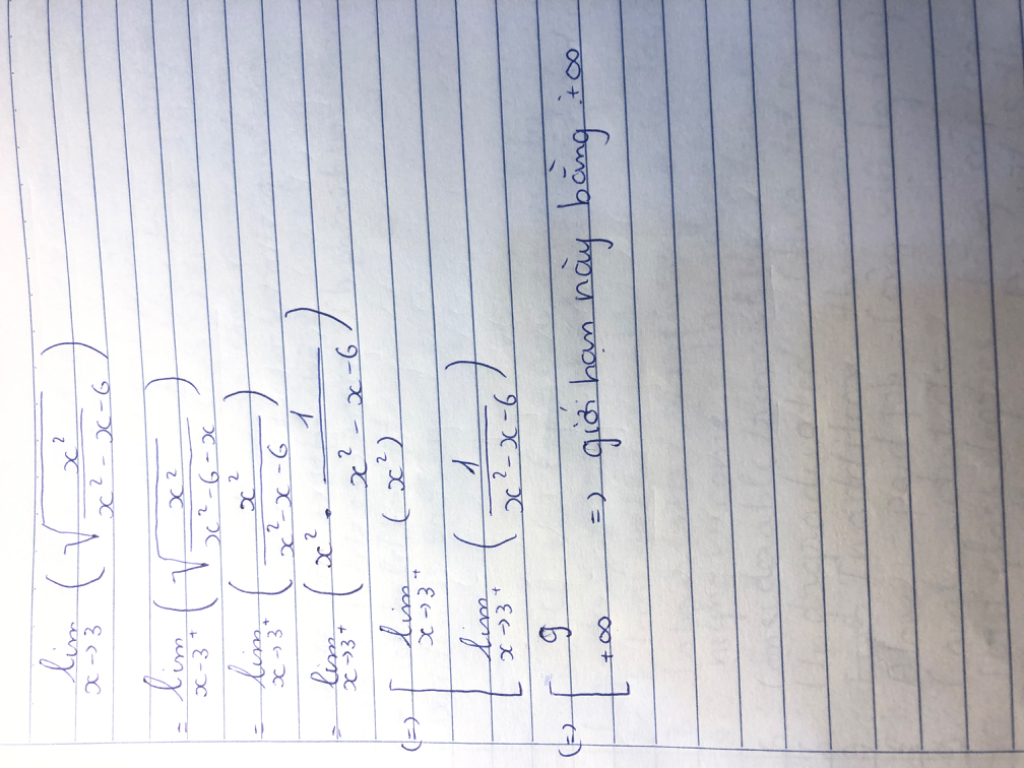 lim x→3 (√(x²/(x²-x-6)))
= lim x→3⁺ (√(x²/(x²-6-x)))
= lim x→3⁺ (x²/(x²-x-6))
= lim x→3⁺ (x² · 1/(x²-x-6))
(=) [ lim x→3⁺ (x²)
lim x→3⁺ (1/(x²-x-6))
(=) [ 9
+∞ =) giới hạn này bằng +∞